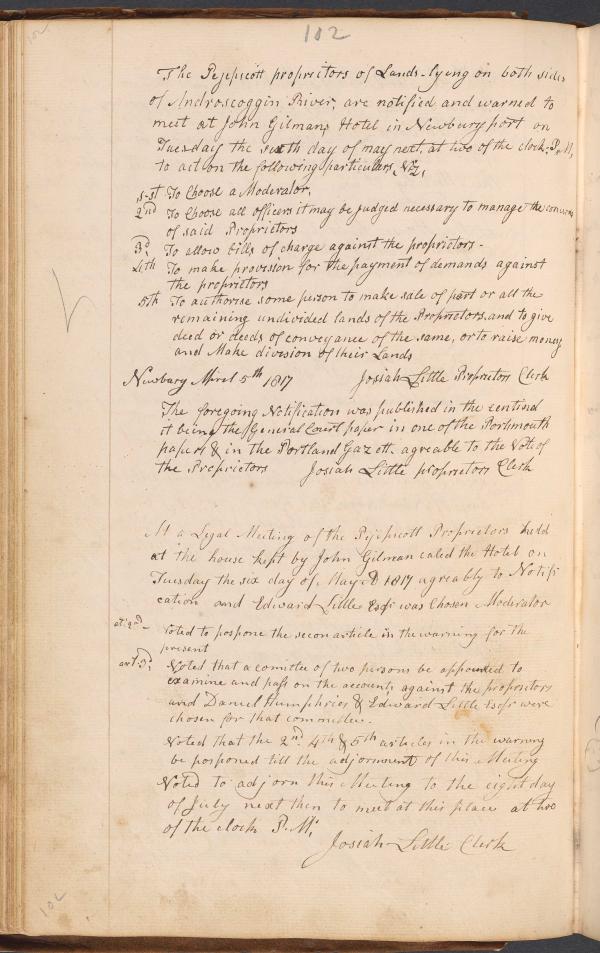 102
102
The Pejepscott proprietors of Lands lying on both sides
of Androscoggin River, are notified and warned to
meet at John Gilmans Hotel in Newburyport on
Tuesday the sixth day of may next, at two of the clock, P.M,
to act on the following particulars, Viz,
1-st To Choose a Moderator,
2nd To Choose all officers it may be judged necessary to manage the concerns
of said Proprietors
3d, To allow bills of charge against the proprietors -
4th To make provision for the payment of demands against
the proprietors
5th To authorise some person to make sale of part or all the
remaining undivided lands of the Proprietors, and to give
deed or deeds of conveyance of the same, or to raise money
and Make division of their Lands
Newbury April 5th 1817 Josiah Little Proprietors Clerk
The foregoing Notification was published in the Centinel
it being the General Court paper in one of the Portsmouth
papers & in the Portland Gazett. agreable to the Vote of
the Proprietors Josiah Little proprietors Clerk
At a Legal Meeting of the Pejepscott Proprietors held
at the house kept by John Gilman caled the Hotel on
Tuesday the six day of May AD 1817 agreably to Notifi
cation and Edward Little Esqr was Chosen Moderator
at: 2nd - Voted to pospone the secon article in the warning for the
present
art 3d, Voted that a comittee of two persons be appointed to
examine and pass on the accounts against the propritors
and Daniel Humphries & Edward Little Esqr were
chosen for that committee.
Voted that the 2nd. 4th & 5th articles in the warning
be posponed till the adjornment of this Meeting
Voted to adjorn this Meeting to the eight day
of July next then to meet at this place at two
of the clock P.M.
Josiah Little Clerk
102